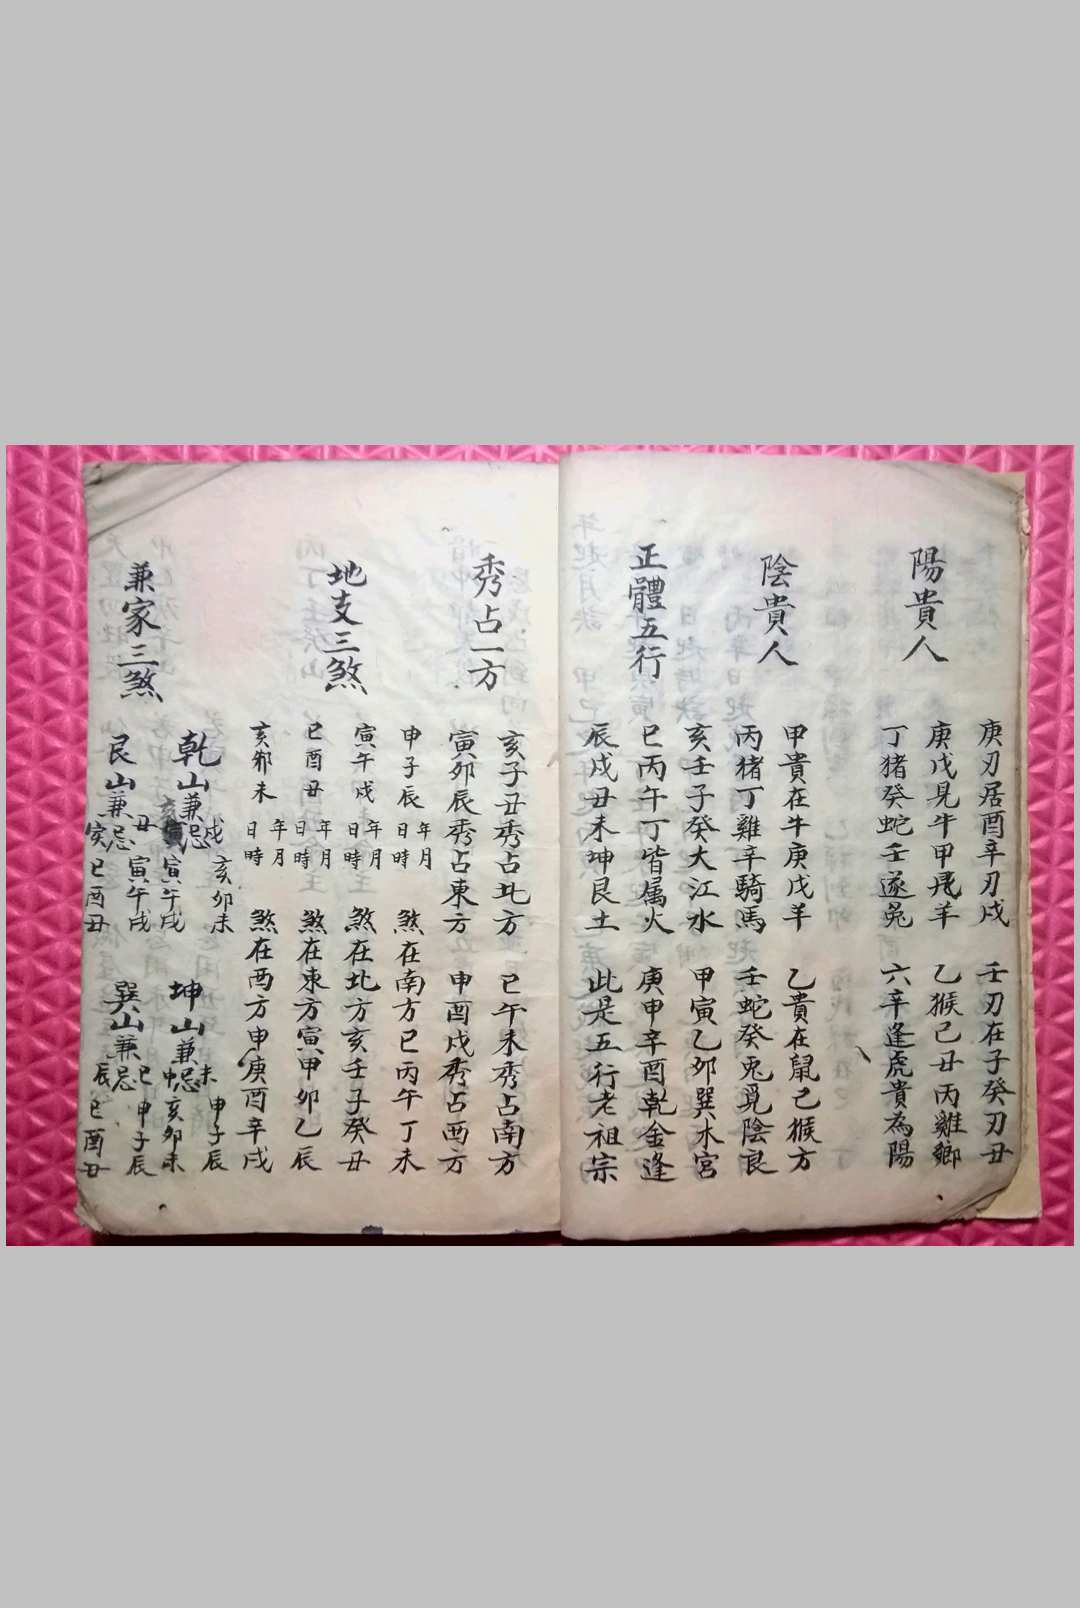 庚刃居酉辛刃戌　壬刃在子癸刃丑
陽貴人
庚戊見牛甲飛羊　乙猴己丑丙雞鄉
丁猪癸蛇壬遂兔　六辛逢虎貴為陽
陰貴人
甲貴在牛庚戊羊　乙貴在鼠己猴方
丙猪丁雞辛騎馬　壬蛇癸兔覓陰良
正體五行
亥壬子癸大江水　甲寅乙卯巽木宮
巳丙午丁皆属火　庚申辛酉乾金逢
辰戌丑未坤艮土　此是五行老祖宗
秀占一方
亥子丑秀占北方　巳午未秀占南方
寅卯辰秀占東方　申酉戌秀占西方
地支三煞
申子辰　年月日時　煞在南方巳丙午丁未
寅午戌　年月日時　煞在北方亥壬子癸丑
巳酉丑　年月日時　煞在東方寅甲卯乙辰
亥卯未　年月日時　煞在西方申庚酉辛戌
兼家三煞
乾山兼忌　戌亥卯未　亥寅午戌
坤山兼忌　未申子辰　申亥卯未
艮山兼忌　丑寅午戌　寅巳酉丑
巽山兼忌　巳申子辰　辰巳酉丑